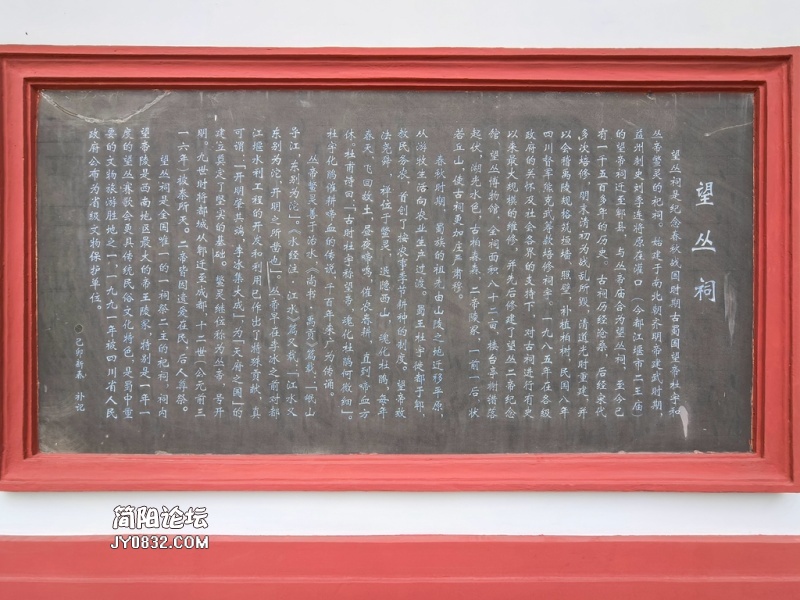 望丛祠
望丛祠是纪念春秋战国时期古蜀国望帝杜宇和
丛帝鳖灵的祀祠。始建于南北朝齐明帝建武时期
益州刺史刘季连将原在灌口（今都江堰市二王庙）
的望帝祠迁至郫县，与丛帝庙合为望丛祠，至今已
有一千五百多年的历史。古祠历经沧桑，后经宋代
多次培修，明末清初为战乱所毁，清道光时重建，并
以会稽禹陵规格筑垣墙、照壁，补植柏树，民国八年
四川督军熊克武筹款培修祠宇。一九八五年在各级
政府的关怀及社会各界的支持下，对古祠进行有史
以来最大规模的维修，并先后修建了望丛二帝纪念
馆、望丛博物馆，全祠面积八十二亩，楼台亭榭错落
起伏，湖光水色，古柏森森，二帝陵冢，一前一后，状
若丘山，使古祠更加庄严肃穆。
春秋时期，蜀族的祖先由山陵之地迁移平原，
从游牧生活向农业生产过渡。蜀王杜宇徙都于郫，
教民务农，首创了按农事季节耕种的制度。望帝效
法尧舜，禅位于鳖灵，退隐西山，魂化杜鹃，每年
春天，飞回故土，昼夜啼鸣，催农春耕，直到啼血方
休。杜甫诗曰：“古时杜宇称望帝，魂化杜鹃何微细”。
杜宇化鹃催耕啼血的传说，千百年来广为传诵。
丛帝鳖灵善于治水，《尚书·禹贡》篇载：“岷山
导江，东别为沱”。《水经注·江水》篇又载：“江水又
东别为沱，开明之所凿也”，丛帝早在李冰之前对都
江堰水利工程的开发和利用已作出了特殊贡献，真
可谓：“开明肇其端，李冰集大成”，为“天府之国”的
建立奠定了坚实的基础。鳖灵继位称为丛帝，号开
明。九世时将都城从郫迁至成都，十二世（公元前三
一六年）被秦所灭。二帝皆因遗爱在民，后人尊祭。
望丛祠是全国唯一的一祠祭二主的祀祠，祠内
望帝陵是西南地区最大的帝王陵冢，特别是一年一
度的望丛赛歌会更具传统民俗文化特色，是蜀中重
要的文物旅游胜地之一，一九九一年被四川省人民
政府公布为省级文物保护单位。
己卯新春 补记
简阳论坛
JY0832.COM